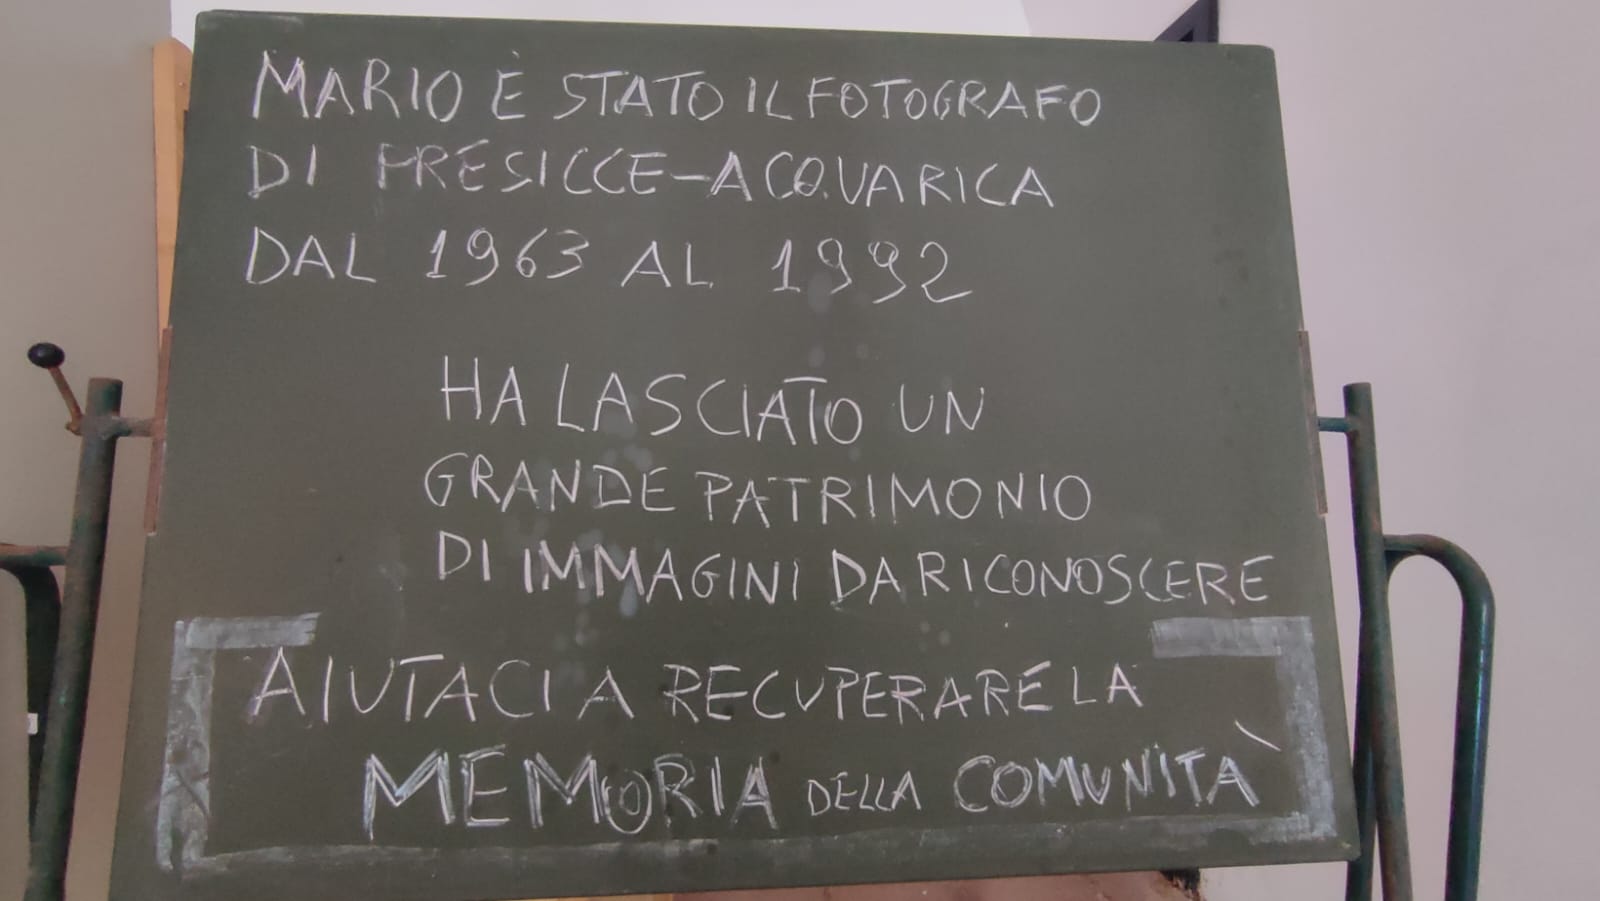 MARIO È STATO IL FOTOGRAFO
DI PRESICCE-ACQUARICA
DAL 1963 AL 1992
HA LASCIATO UN
GRANDE PATRIMONIO
DI IMMAGINI DA RICONOSCERE
AIUTACI A RECUPERARE LA
MEMORIA DELLA COMUNITÀ